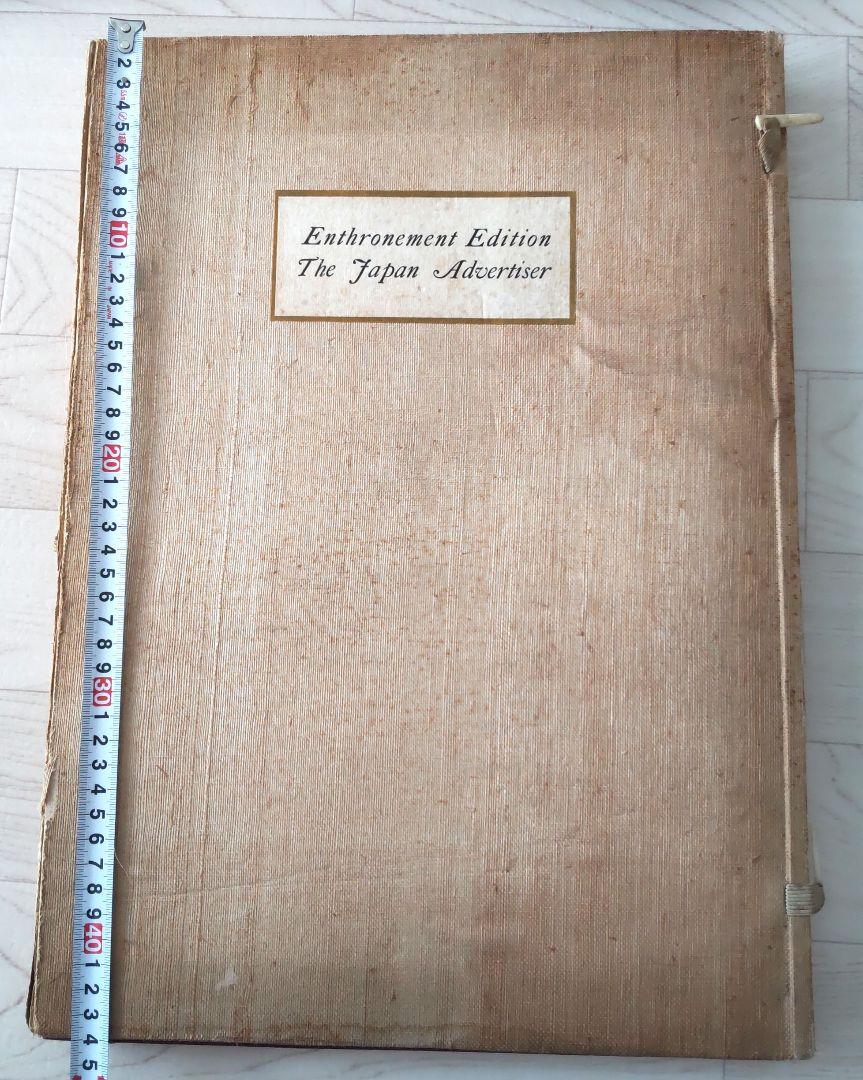 Enthronement Edition
The Japan Advertiser
2
3
4
5
6
7
8
9
10
1
2
3
4
5
6
7
8
9
20
1
2
3
4
5
6
7
8
9
30
1
2
3
4
5
6
7
8
9
40
1
2
3
4
5